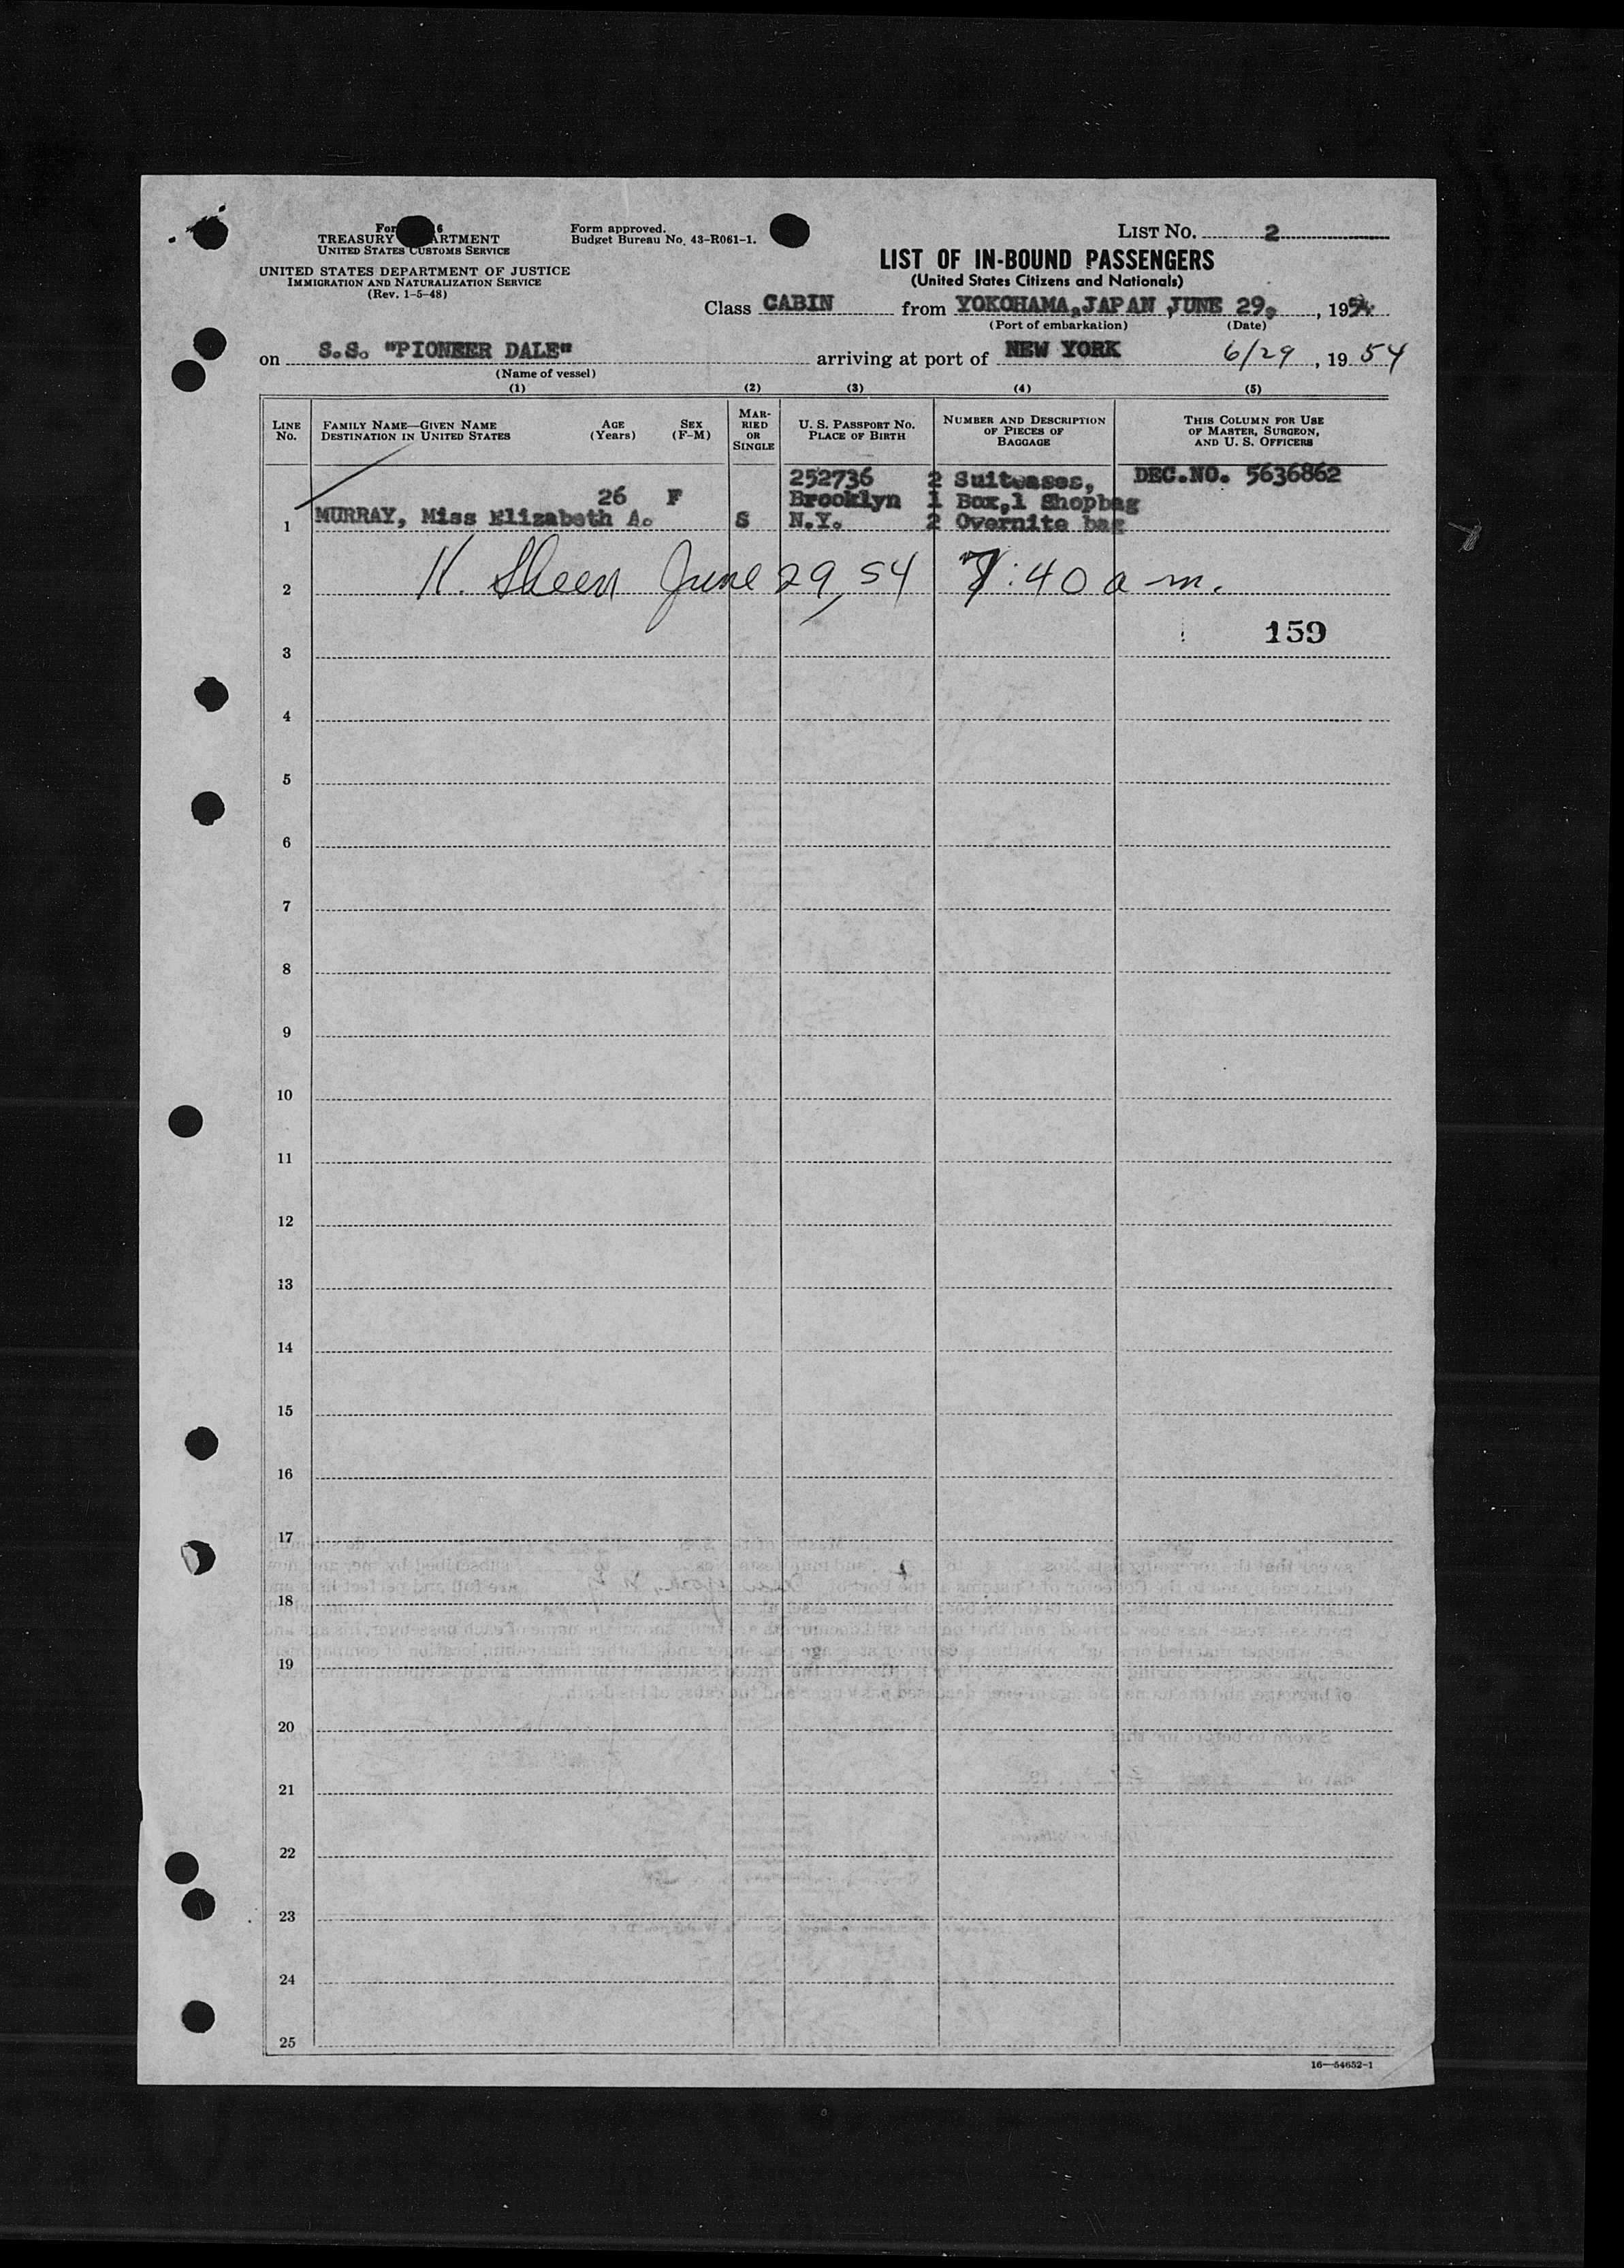 TREASURY
UNITED STATES CUSTOMS SERVICE
UNITED STATES DEPARTMENT OF JUSTICE
IMMIGRATION AND NATURALIZATION SERVICE
(Rev. 1-5-48)
Form approved.
Budget Bureau No. 43-R061-1.
LIST NO. 2
LIST OF IN-BOUND PASSENGERS
(United States Citizens and Nationals)
Class CABIN from YOKOHAMA, JAPAN JUNE 29, , 1954
(Port of embarkation) (Date)
on S.S. "PIONEER DALE" arriving at port of NEW YORK 6/29, 19 54
(Name of vessel)
(1) (2) (3) (4) (5)
LINE NO.
FAMILY NAME—GIVEN NAME
DESTINATION IN UNITED STATES
AGE
(Years)
SEX
(F-M)
MAR-
RIED
OR
SINGLE
U. S. PASSPORT NO.
PLACE OF BIRTH
NUMBER AND DESCRIPTION
OF PIECES OF
BAGGAGE
THIS COLUMN FOR USE
OF MASTER, SURGEON,
AND U. S. OFFICERS
252736 2 Suitcases, DEC.NO. 5636862
26 F Brooklyn 1 Box,1 Shopbag
1 MURRAY, Miss Elizabeth A. S N.Y. 2 Overnite bag
2 H. Sheen June 29, 54 7:40 a m.
159
3
4
5
6
7
8
9
10
11
12
13
14
15
16
17
18
19
20
21
22
23
24
25
16—54652-1